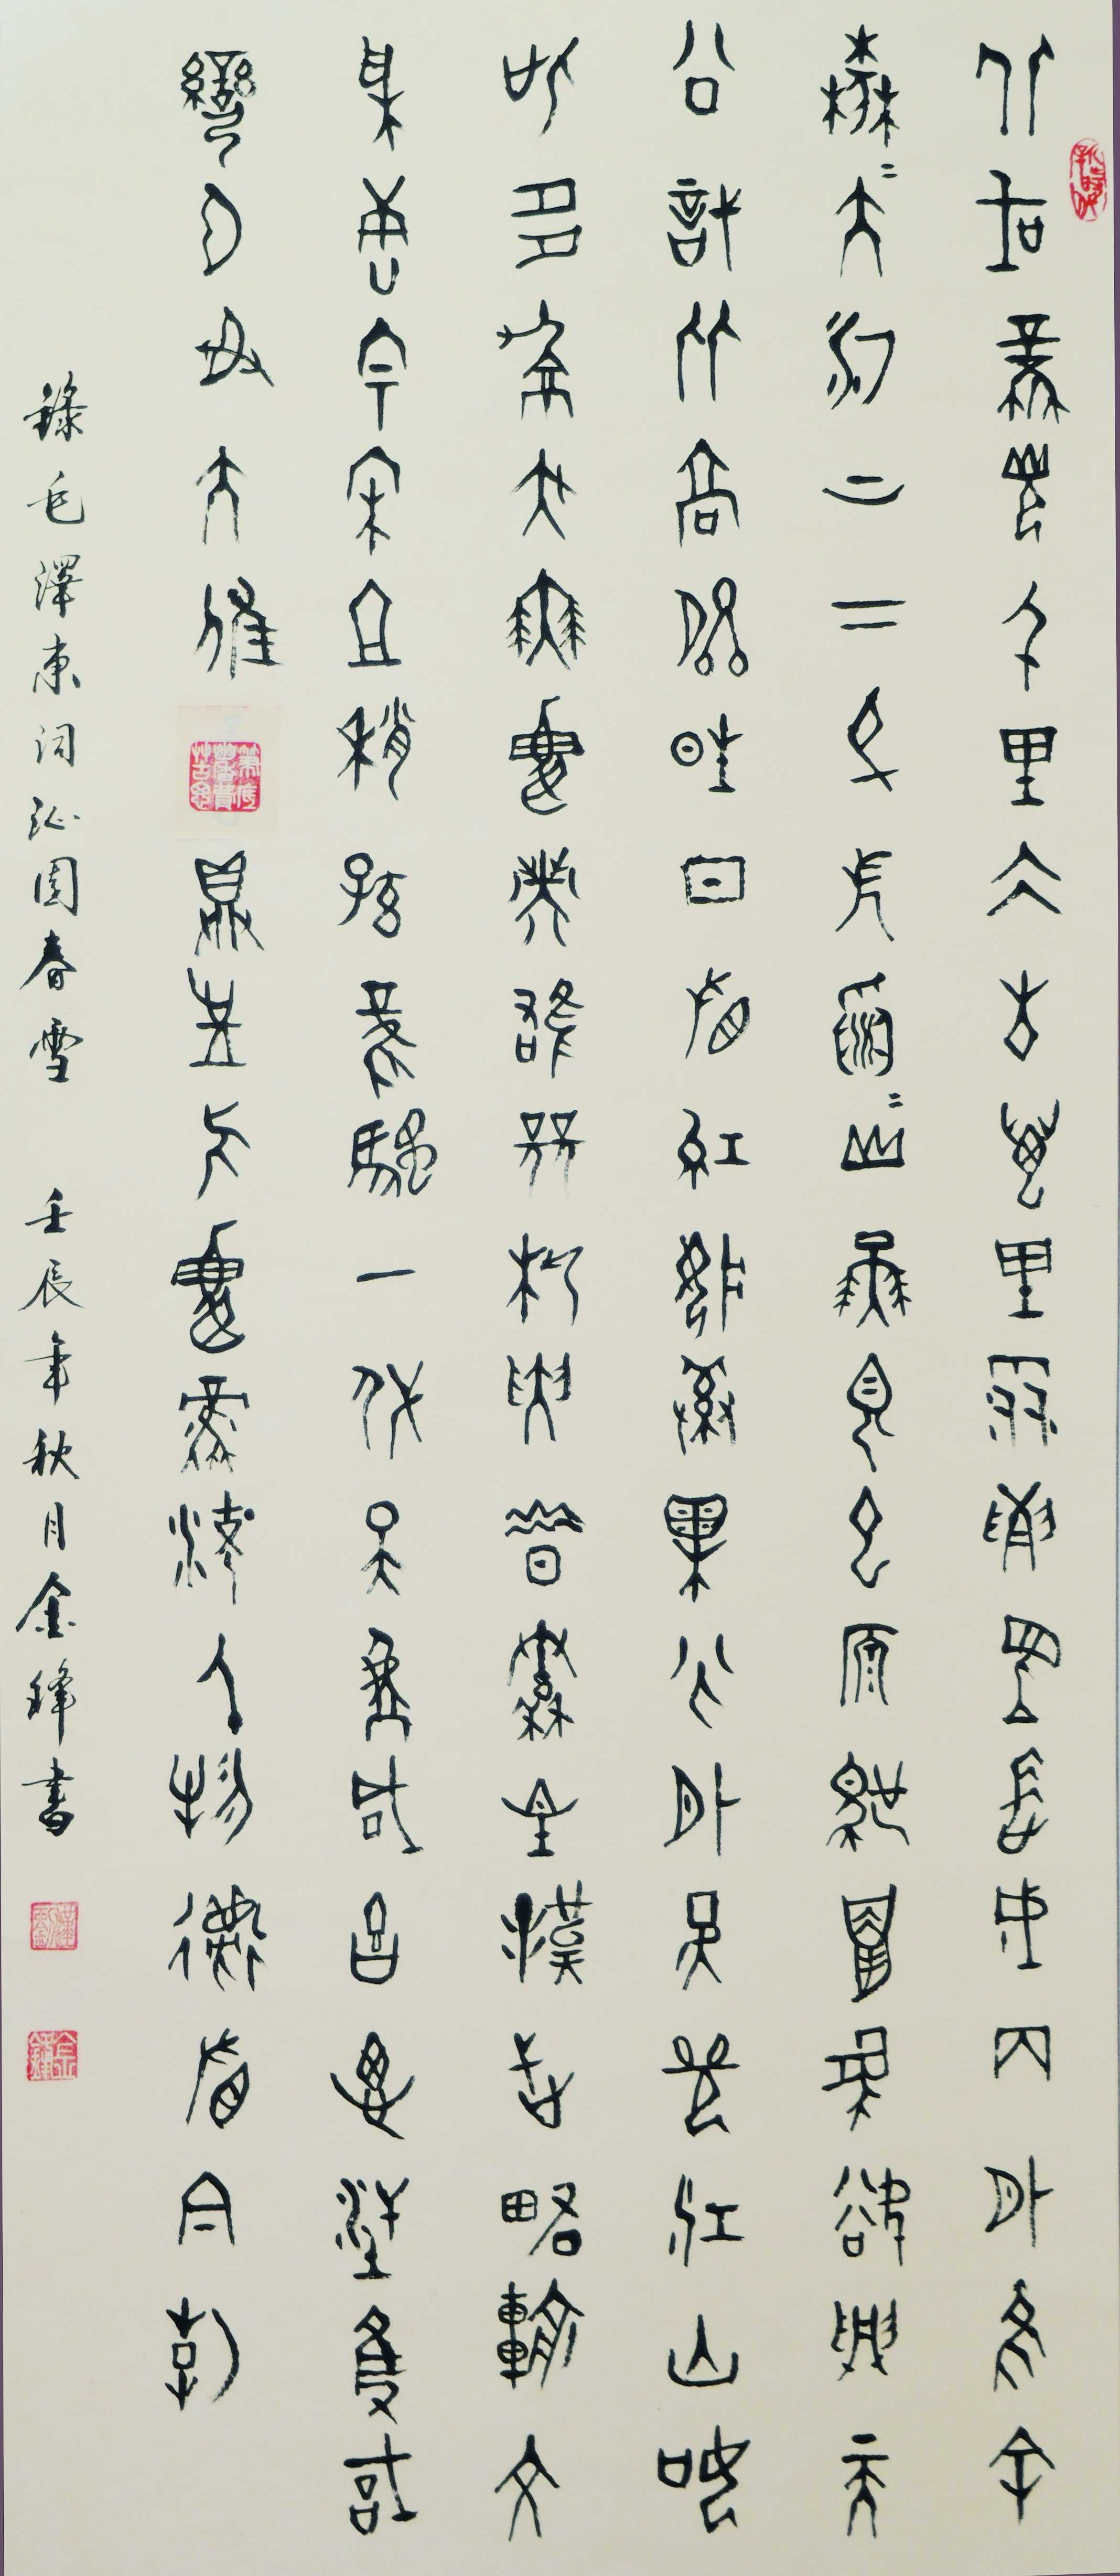 北國風光千里冰封萬里雪飄望長城内外惟余
莽〻大河上下頓失滔〻山舞銀蛇原馳蠟象欲與天
公試比高須晴日看紅裝素裹分外妖嬈江山如
此多嬌引無數英雄競折腰惜秦皇漢武略輸文
采唐宗宋祖稍遜風騷一代天驕成吉思汗隻識
彎弓射大雕俱往矣數風流人物還看今朝
錄毛澤東詞沁園春雪 壬辰年秋月金鋒書